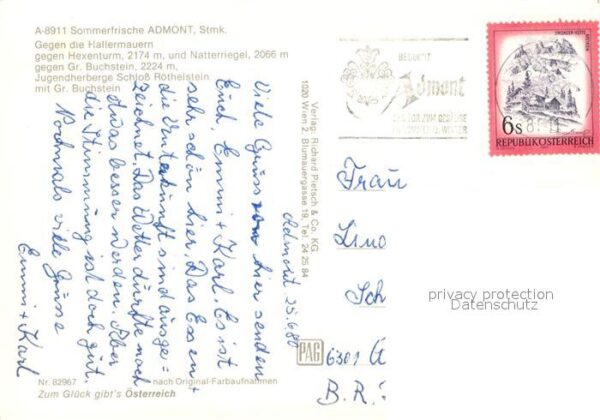 A-8911 Sommerfrische ADMONT, Stmk.
Gegen die Hallermauern
gegen Hexenturm, 2174 m, und Natterriegel, 2066 m
gegen Gr. Buchstein, 2224 m,
Jugendherberge Schloß Röthelstein
mit Gr. Buchstein
Admont 25.6.80
Viele Grüsse von hier senden
Euch, Emmi + Karl. Es ist
sehr schön hier. Das Essen +
die Unterkunft sind ausge=
zeichnet. Das Wetter dürfte noch
etwas besser werden. Aber
die Stimmung ist doch gut.
Nochmals viele Grüsse
Emmi + Karl
Verlag: Richard Pietsch & Co. KG
1020 Wien 2, Blumauergasse 19, Tel. 24 25 84
PAG
BESUCHT
Admont
6S
REPUBLIK ÖSTERREICH
Frau
Lino
Sch
6301
B.R.
privacy protection
Datenschutz
Nr. 82967
nach Original-Farbaufnahmen
Zum Glück gibt's Österreich